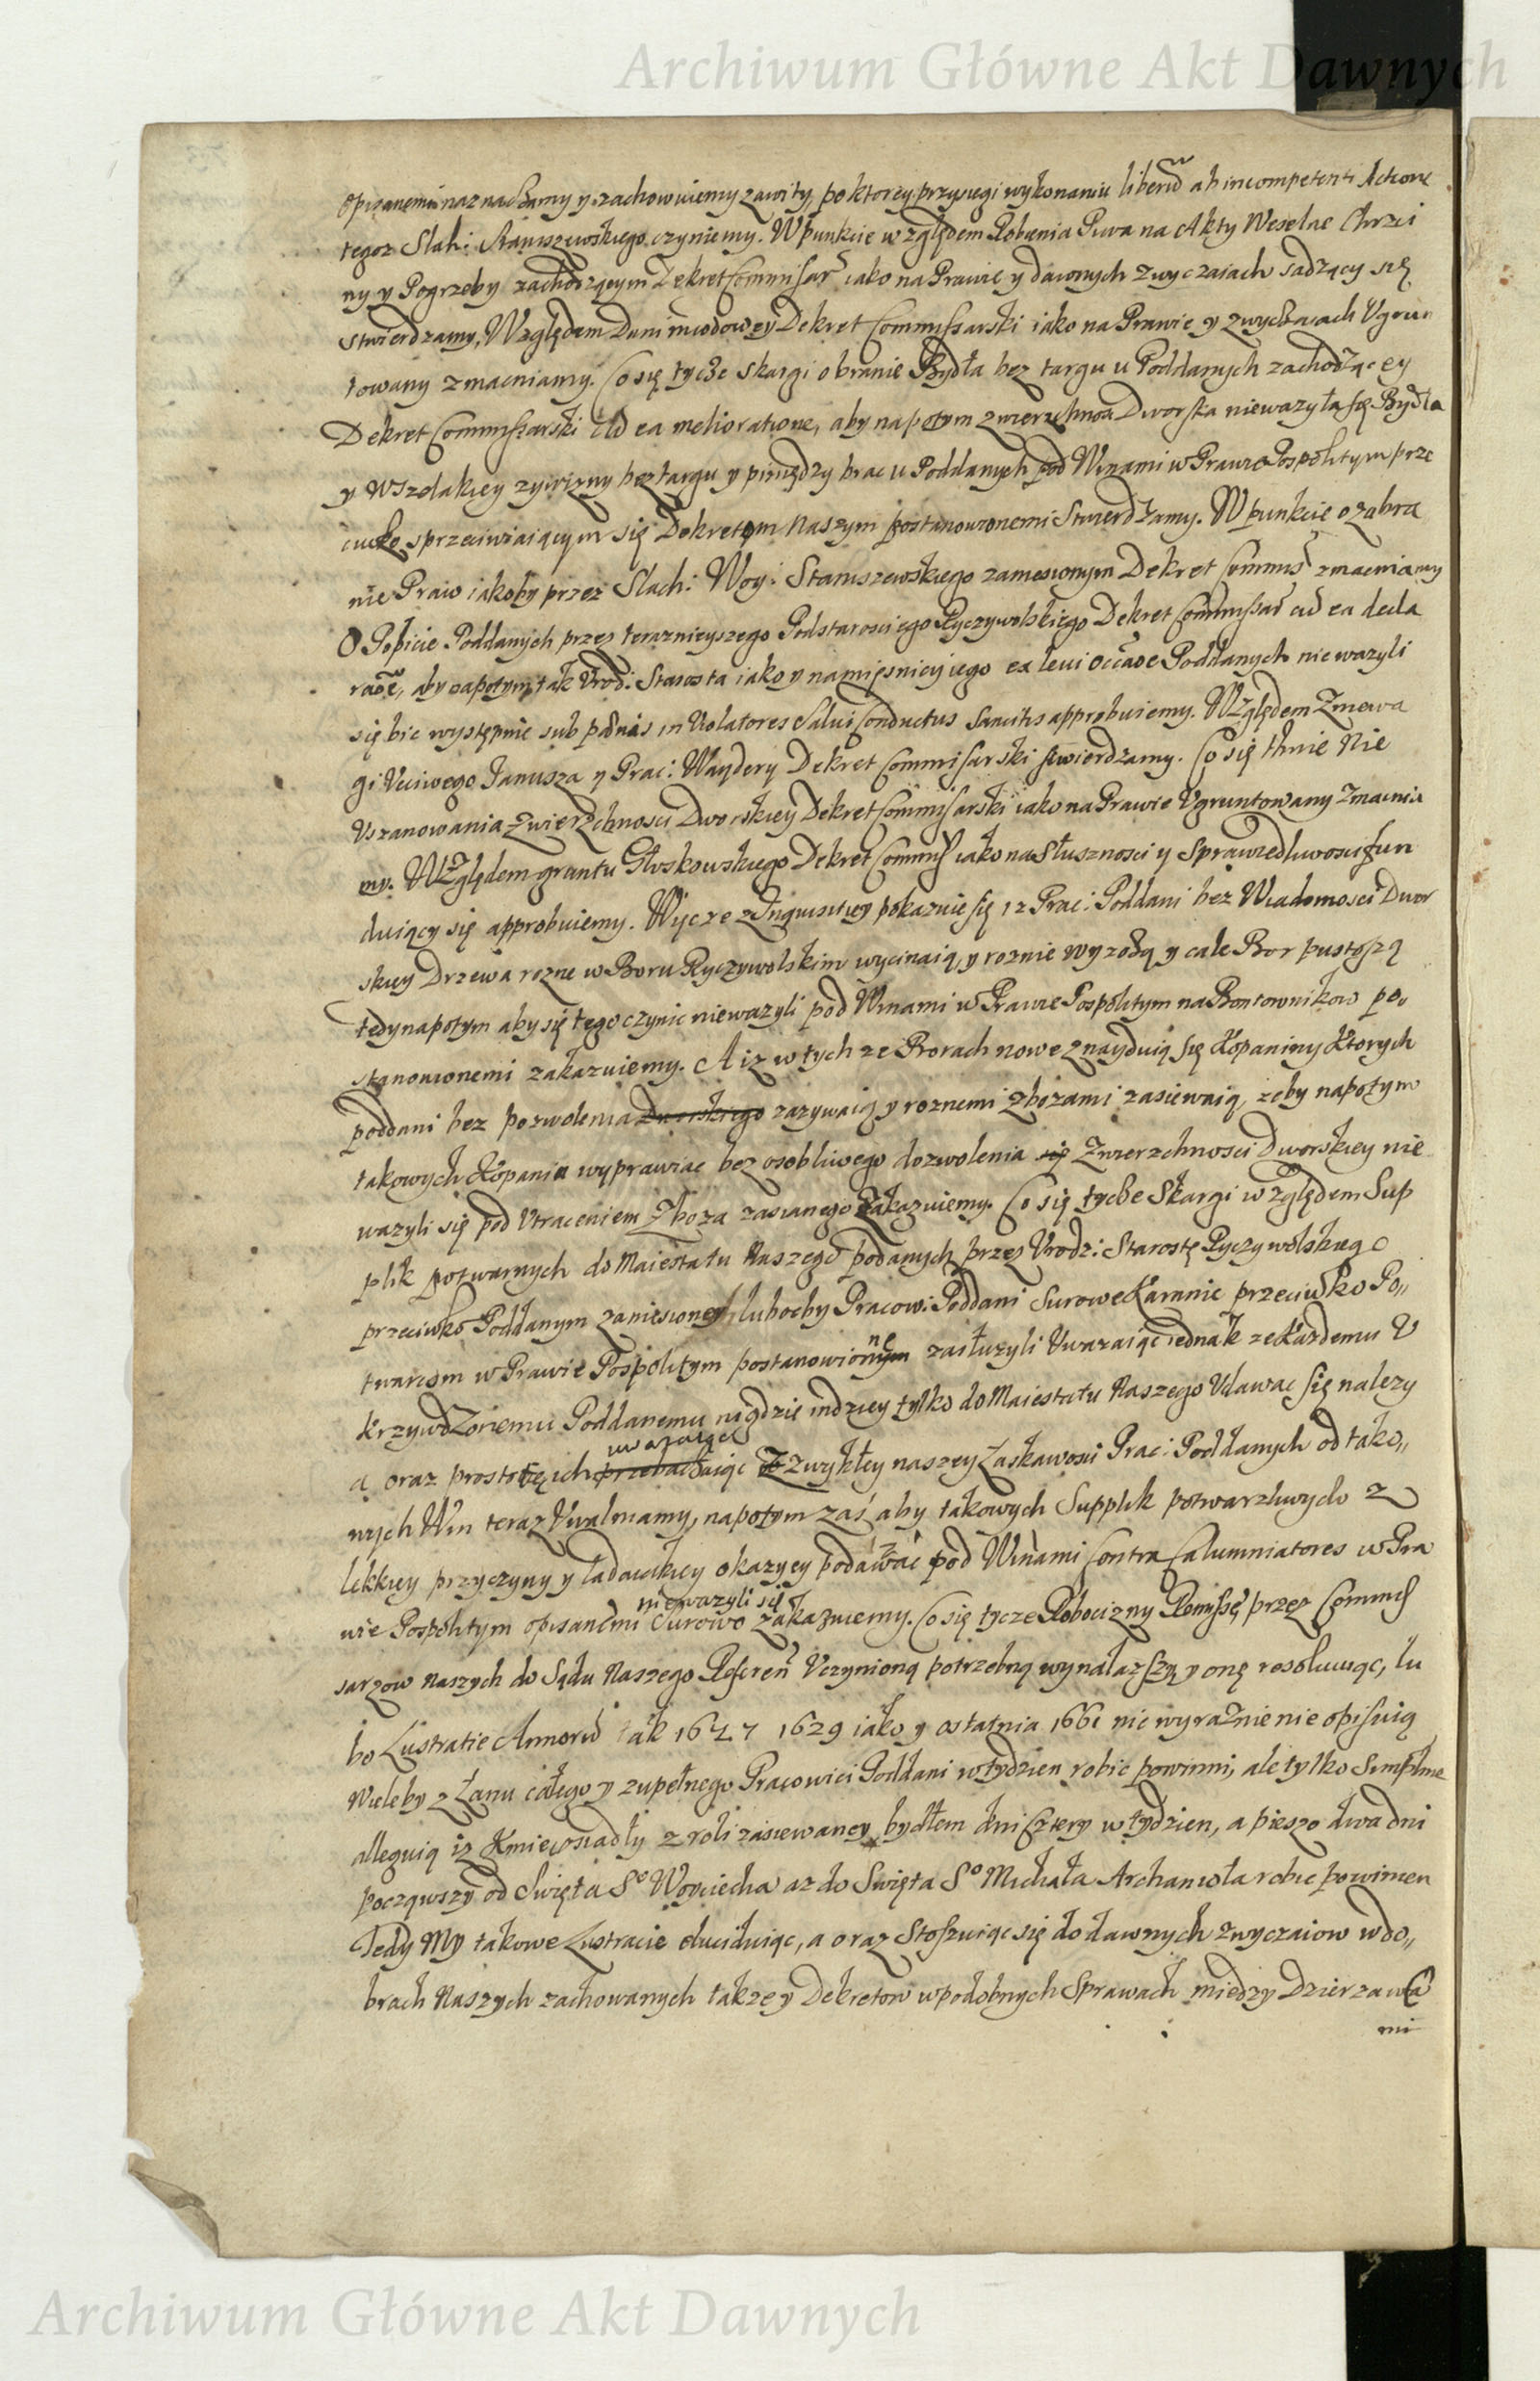 Archiwum Główne Akt Dawnych
opisanemi naznaczamy y zachowuiemy zawity, po ktorey przysięgi wykonaniu liberũ ab incompetenti Actione
tegoz Slah: Staniszewskiego czyniemy. W punkcie względem Robienia Piwa na Akty Weselne Chrzci
ny y Pogrzeby zachodzącym Dekret Commissar iako na Prawie y dawnych zwyczaiach sadzący się
stwierdzamy, Względem Dani miodowey Dekret Commissarski iako na Prawie y zwyczaiach Vgrun
towany zmacniamy. Co się tycze skargi o branie Bydła bez targu u Poddanych zachodzącey
Dekret Commissarski Ad ea melioratione, aby napotym zwierzchnoś Dworska nieważyła się Bydła
y wszelakiey zywizny bez targu y pieniędzy brac u Poddanych pod Winami w Prawie Pospolitym prze
ciwko sprzeciwiaiącym się Dekretom Naszym postanowionemi Stwierdzamy. W punkcie o zabra
nie Praw iakoby przez Slach: Woy: Staniszewskiego zaniesionym Dekret Commis zmacniamy
O Pobicie Poddanych przez terazneyszego Podstarosciego Ryczywolskiego Dekret Commissar cũ ea decla
raõe, aby napotym tak Vrodz: Starosta iako y namięsnicy iego ex levi occaõe Poddanych nie wazyli
się bic występnie sub pœnis in Violatores Salvi Conductus Sancitis approbuiemy. Względem Zniewa
gi Vcciwego Janusza y Prac: Waydery Dekret Commisarski stwierdzamy. Co się tknie Nie
Vszanowania Zwierzchnosci Dworskiey Dekret Commisarski iako na Prawie Vgruntowany Zmacnia
my. Względem grantu Głoskowskiego Dekret Commis iako na Słusznosci y Sprawiedliwosci fun
duiący się approbuiemy. Więc ze z Inquisitiey pokazuie się iz Prac: Poddani bez Wiadomosci Dwor
skiey Drzewa rozne w Boru Ryczywolskim wycinaią, y roznie wyrobą y cale Bor pustoszą
tedy napotym aby się tego czynic nieważyli pod Winami w Prawie Pospolitym na Bontownikow po„
stanowionemi zakazuiemy. A iz w tych ze Borach nowe znayduią się Kopaniny Ktorych
poddani bez pozwolenia Dworskiego zazywaią y roznemi zbozami zasiewaią, zeby napotym
takowych Kopanin wyprawiac bez osobliwego dozwolenia się Zwierzchnosci Dworskiey nie
wazyli się pod Vtraceniem Zboza zasianego Zakazuiemy. Co się tycze Skargi względem Sup
plik potwarnych do Maiestatu Naszego podanych przez Vrodz: Starostę Ryczywolskiego
przeciwko Poddanym zaniesioney, lubocby Pracow: Poddani Surowe Karanie przeciwko Po„
twarcom w Prawie Pospolitym postanowionym ne zasłuzyli Vwazaiąc iednak ze Kazdemu V
Krzywdzonemu Poddanemu nigdzie indziey tylko do Maiestatu Naszego Vdawac się nalezy
uwazaiąc
a oraz prostotę ich przebaczaiąc Z Zwykłey naszey Łaskawosci Prac: Poddanych od tako„
wych Win teraz Vwalniamy, napotym zaś aby takowych Supplik potwarzliwych z
lekkiey przyczyny y ladaiakiey okazyey podawać pod Winami Contra Calumniatores w Pra
niewazyli się
wie Pospolitym opisanemi Surowo zakazuiemy. Co się tycze Robocizny Remissę przez Commis
sarzow Naszych do Sądu Naszego Referen Vczynioną potrzebną wynalazszy y onę resolwuiąc, lu
bo Lustratie Annorũ tak 1627 1629 iako y ostatnia 1661 nic wyraznie nie opisuią
Wieleby z Łanu całego y zupełnego Pracowici Poddani w tydzien robic powinni, ale tylko
alleguią iz Kmiec osiadły z roli zasiewaney bydłem dni Cztery w tydzien, a pieszo dwa dni
począwszy od Swięta So Woyciecha az do Swięta So Michała Archanioła robic powinien
Tedy My takowe Lustracie eluciduiąc, a oraz Stosuiąc się do dawnych zwyczaiow w do„
brach Naszych zachowanych takze y Dekretow w podobnych Sprawach miedzy Dzierzawca
mi
Archiwum Główne Akt Dawnych